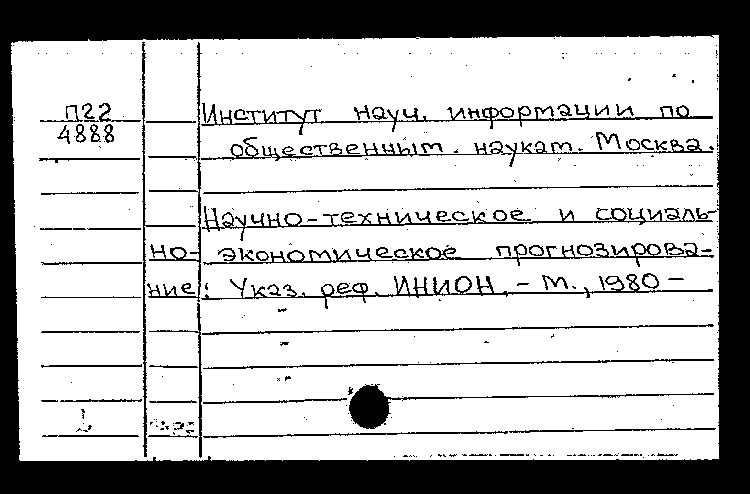 П22
4888
Институт науч. информации по
общественным. наукам. Москва.
Научно-техническое и социаль-
но- экономическое прогнозирова-
ние: Указ. реф. ИНИОН. - М., 1980 -